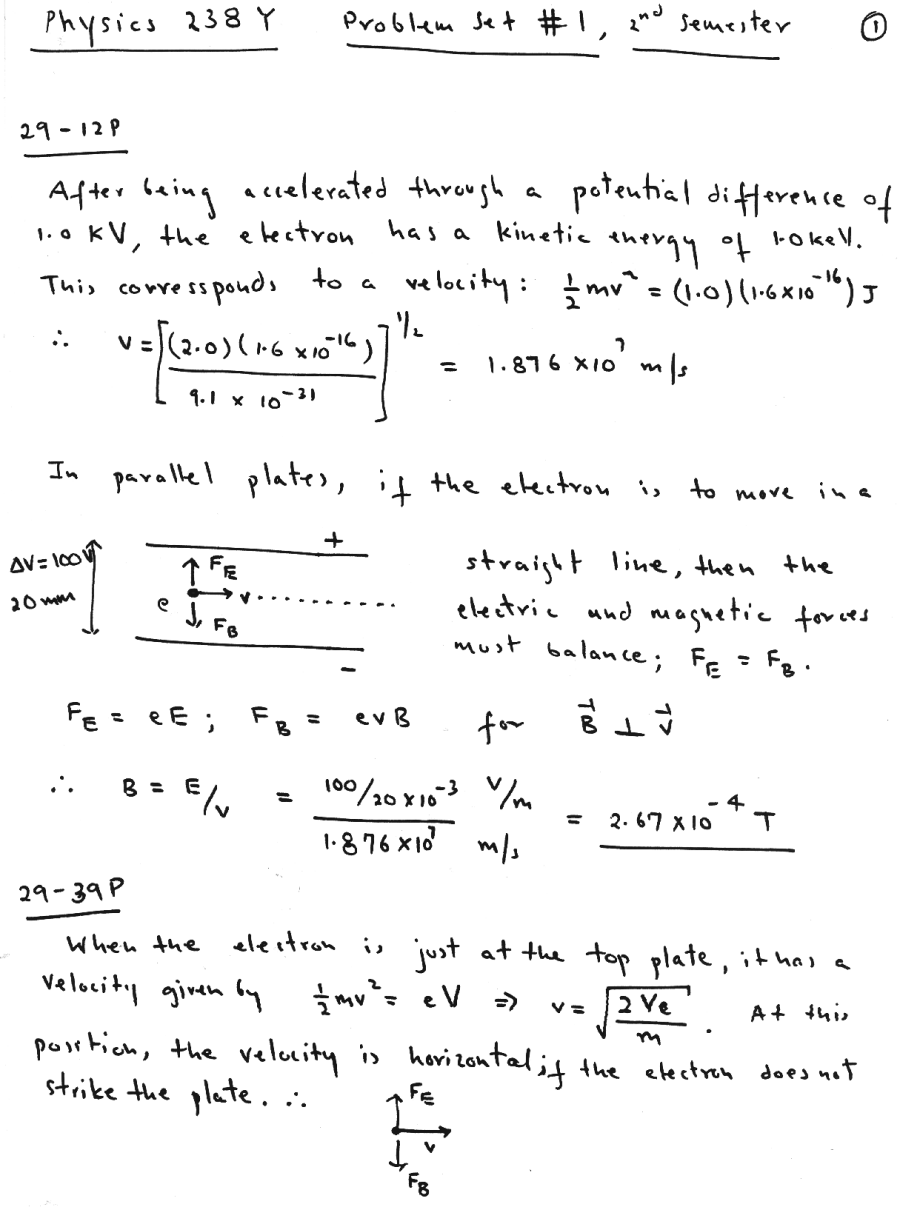 Physics 238 Y Problem Set #1, 2nd Semester ①
29-12P
After being accelerated through a potential difference of
1.0 KV, the electron has a kinetic energy of 1.0 keV.
This corressponds to a velocity : ½mv² = (1.0)(1.6×10⁻¹⁶) J
∴ v = [(2.0)(1.6 ×10⁻¹⁶) / 9.1 × 10⁻³¹]^1/2 = 1.876 ×10⁷ m/s
In parallel plates, if the electron is to move in a
+
ΔV=100V
20 mm
F_E
e
v
F_B
−
straight line, then the
electric and magnetic forces
must balance; F_E = F_B.
F_E = eE ; F_B = evB for B⃗ ⊥ v⃗
∴ B = E/v = (100/20×10⁻³ V/m) / (1.876×10⁷ m/s) = 2.67 ×10⁻⁴ T
29-39P
When the electron is just at the top plate, it has a
velocity given by ½mv² = eV ⇒ v = √(2Ve/m). At this
position, the velocity is horizontal if the electron does not
strike the plate. ∴
F_E
v
F_B